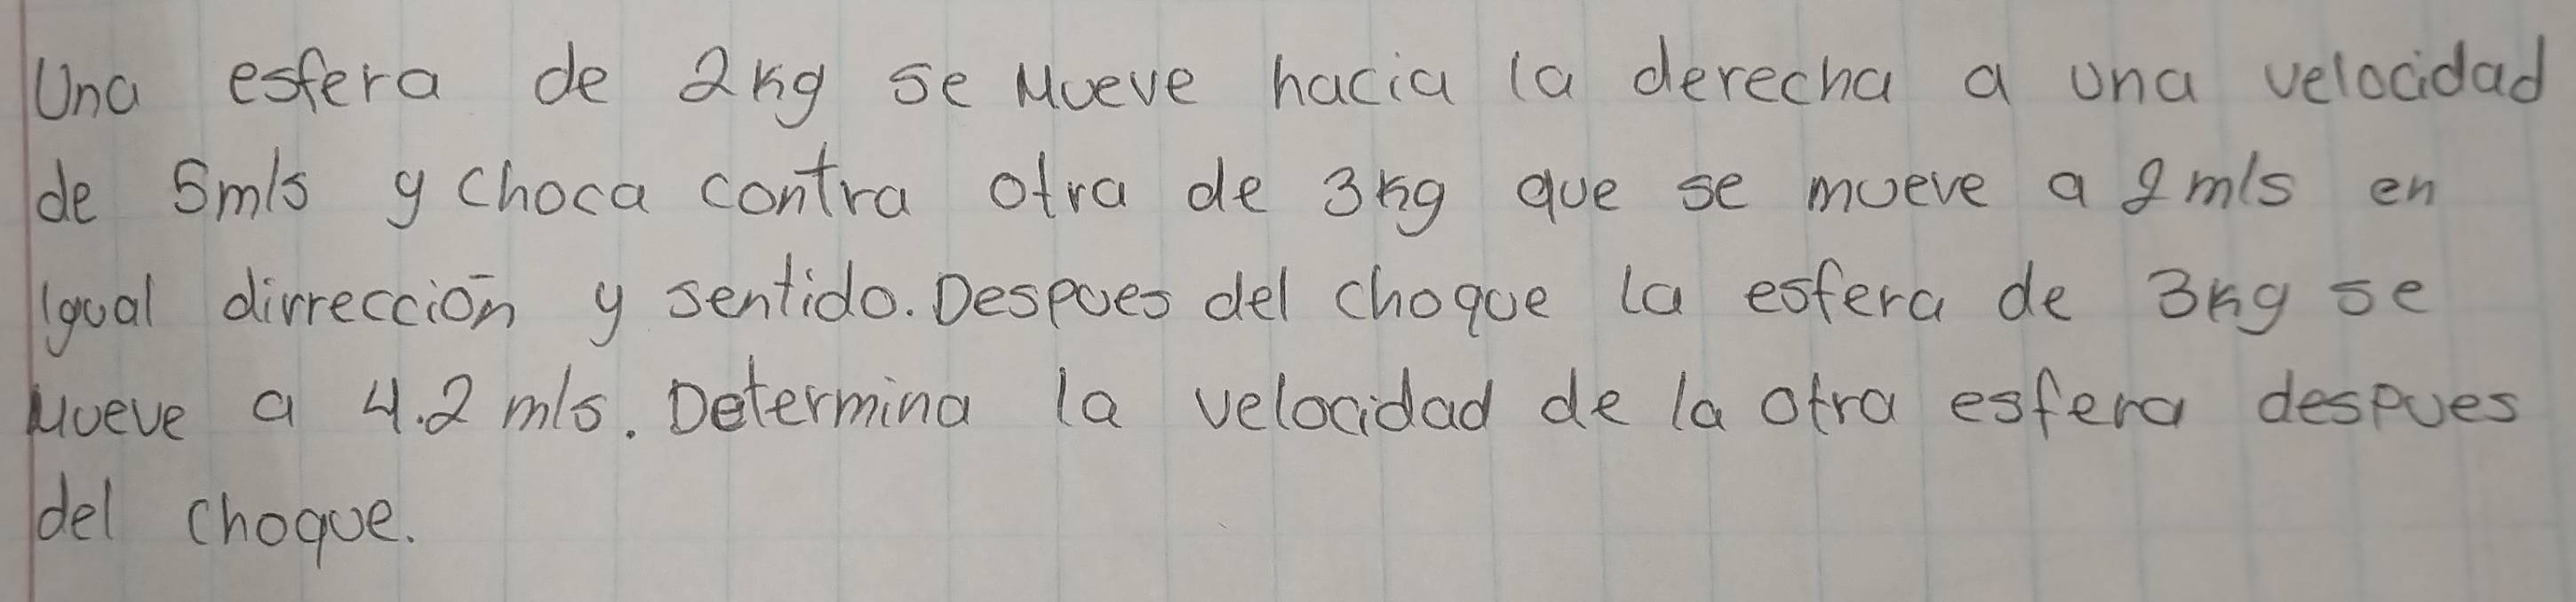 Una esfera de 2kg se Mueve hacia la derecha a una velocidad
de 5m/s y choca contra otra de 3kg que se mueve a 2m/s en
Igual dirrección y sentido. Despues del choque la esfera de 3kg se
Mueve a 4.2 m/s. Determina la velocidad de la otra esfera despues
del choque.